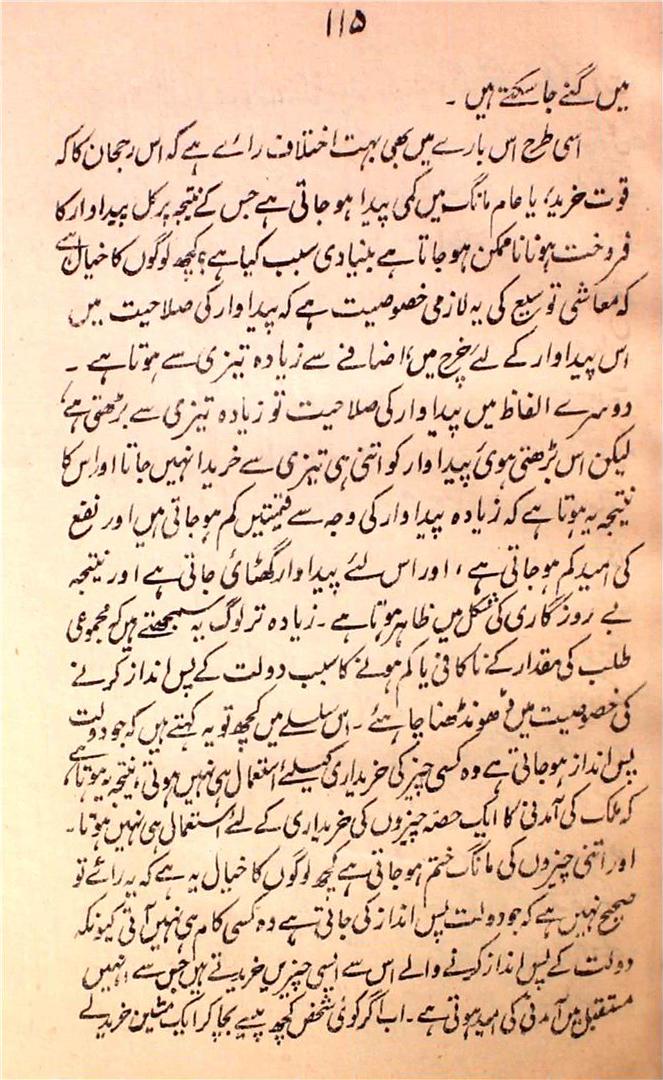 ۱۱۵
میں گنے جا سکتے ہیں ۔
اسی طرح اس بارے میں بھی بہت اختلاف رائے ہے کہ اس رجحان کا کہ
قوت خرید، یا عام مانگ میں کمی پیدا ہو جاتی ہے جس کے نتیجہ پر کل پیداوار کا
فروخت ہونا ناممکن ہو جاتا ہے بنیادی سبب کیا ہے؟ کچھ لوگوں کا خیال ہے
کہ معاشی توسیع کی یہ لازمی خصوصیت ہے کہ پیداوار کی صلاحیت میں
اس پیداوار کے لئے خرچ میں، اضافے سے زیادہ تیزی سے ہوتا ہے ۔
دوسرے الفاظ میں پیداوار کی صلاحیت تو زیادہ تیزی سے بڑھتی ہے،
لیکن اس بڑھتی ہوئی پیداوار کو اتنی ہی تیزی سے خریدا نہیں جاتا اور اس کا
نتیجہ یہ ہوتا ہے کہ زیادہ پیداوار کی وجہ سے قیمتیں کم ہو جاتی ہیں اور نفع
کی امید کم ہو جاتی ہے، اور اس لئے پیداوار گھٹائی جاتی ہے اور نتیجہ
بے روزگاری کی شکل میں ظاہر ہوتا ہے ۔ زیادہ تر لوگ یہ سمجھتے ہیں کہ مجموعی
طلب کی مقدار کے ناکافی یا کم ہونے کا سبب دولت کے پس انداز کرنے
کی خصوصیت میں ڈھونڈھنا چاہئے ۔ اس سلسلے میں کچھ تو یہ کہتے ہیں کہ جو دولت
پس انداز ہو جاتی ہے وہ کسی چیز کی خریداری کیلئے استعمال ہی نہیں ہوتی، نتیجہ یہ ہوتا ہے،
کہ ملک کی آمدنی کا ایک حصہ چیزوں کی خریداری کے لئے استعمال ہی نہیں ہوتا ۔
اور اتنی چیزوں کی مانگ ختم ہو جاتی ہے کچھ لوگوں کا خیال یہ ہے کہ یہ رائے تو
صحیح نہیں ہے کہ جو دولت پس انداز کی جاتی ہے وہ کسی کام ہی نہیں آتی کیونکہ
دولت کے پس انداز کرنے والے اس سے ایسی چیزیں خریدتے ہیں جس سے انہیں
مستقبل میں آمدنی کی امید ہوتی ہے ۔ اب اگر کوئی شخص کچھ پیسے بچا کر ایک مشین خرید لے